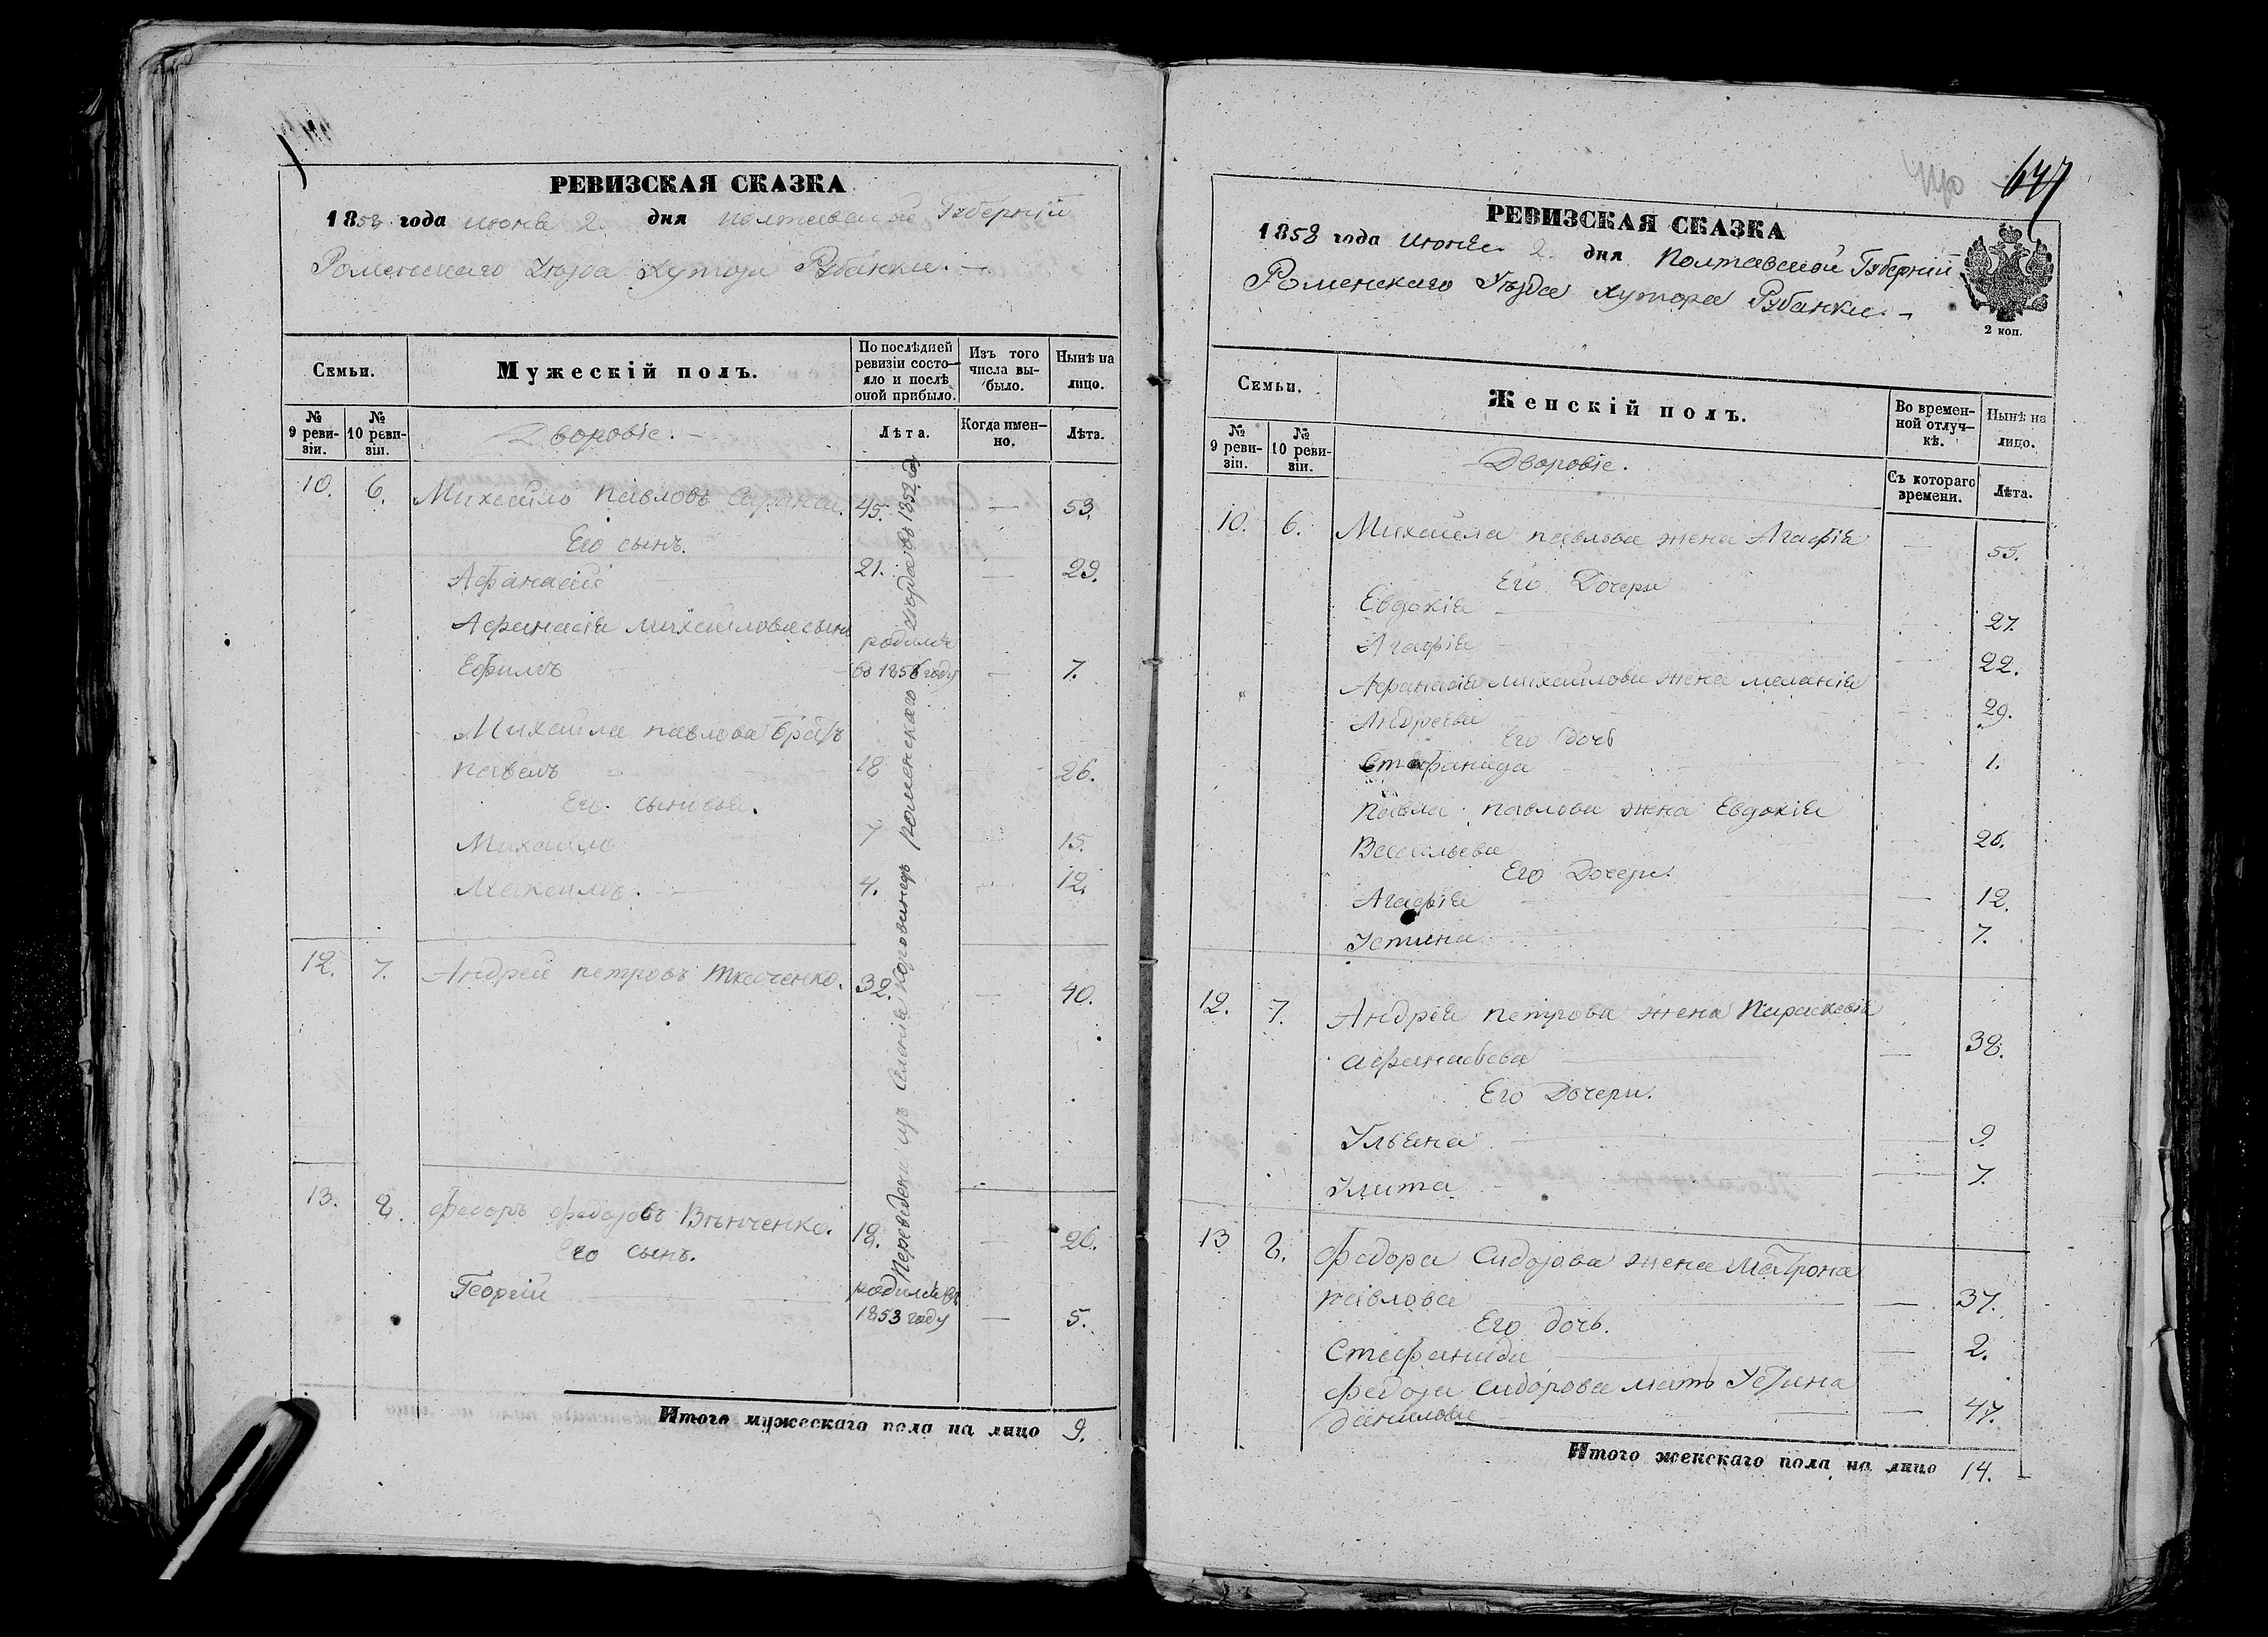 647
РЕВИЗСКАЯ СКАЗКА
1858 года Июня 2. дня Полтавской Губерніи
Роменскаго Уезда хутора Рубанки. —
Семьи.
Мужескій полъ.
По послѣдней ревизіи состояло и послѣ оной прибыло.
Изъ того числа выбыло.
Нынѣ на лицо.
№ 9 ревизіи.
№ 10 ревизіи.
Дворовіе. —
Лѣта.
Когда именно.
Лѣта.
10. 6. Михайло Павловъ 45. — 53.
Его сынъ.
Афанасій 21. — 29.
Афанасія Михайлова сынъ родился
Ефимъ во 1856 году — 7.
Михайла Павлова братъ
Павелъ 18 26.
Его сыновья.
Михайлъ 7 15.
Максимъ. 4. 12.
12. 7. Андрей Петровъ Ткаченко. 32. — 40.
13. 8. Федоръ Федоровъ Вѣнченко. 18. — 26.
Его сынъ.
Георгій родился въ
1853 году — 5.
Переведены изъ имѣнія Коровинецъ роменскаго уезда въ 1852 год
Итого мужескаго пола на лицо 9.
РЕВИЗСКАЯ СКАЗКА
1858 года Июня 2. дня Полтавской Губерніи
Роменскаго Уѣзда хутора Рубанки. —
2 коп.
Семьи.
Женскій полъ.
Во временной отлучкѣ.
Нынѣ на лицо.
№ 9 ревизіи.
№ 10 ревизіи.
Дворовіе.
Съ котораго времени.
Лѣта.
10. 6. Михайла Павлова жена Агафія — 55.
Его Дочери
Евдокія 27.
Агафія 22.
Афанасія Михайлова жена Меланія
Андреева 29.
Его дочь
Стефанида 1.
Павла Павлова жена Евдокія
Васильева 26.
Его Дочери.
Агафія — 12.
Устина 7.
12. 7. Андрея Петрова жена Параскевія
Афанасьева — 38.
Его Дочери.
Ульяна 9.
Улита 7.
13 8. Федора Сидорова жена Матрона
Павлова — 37.
Его дочь.
Стефанида — 2.
Федора Сидорова мать Устина
Данилова — 47.
Итого женскаго пола на лицо 14.